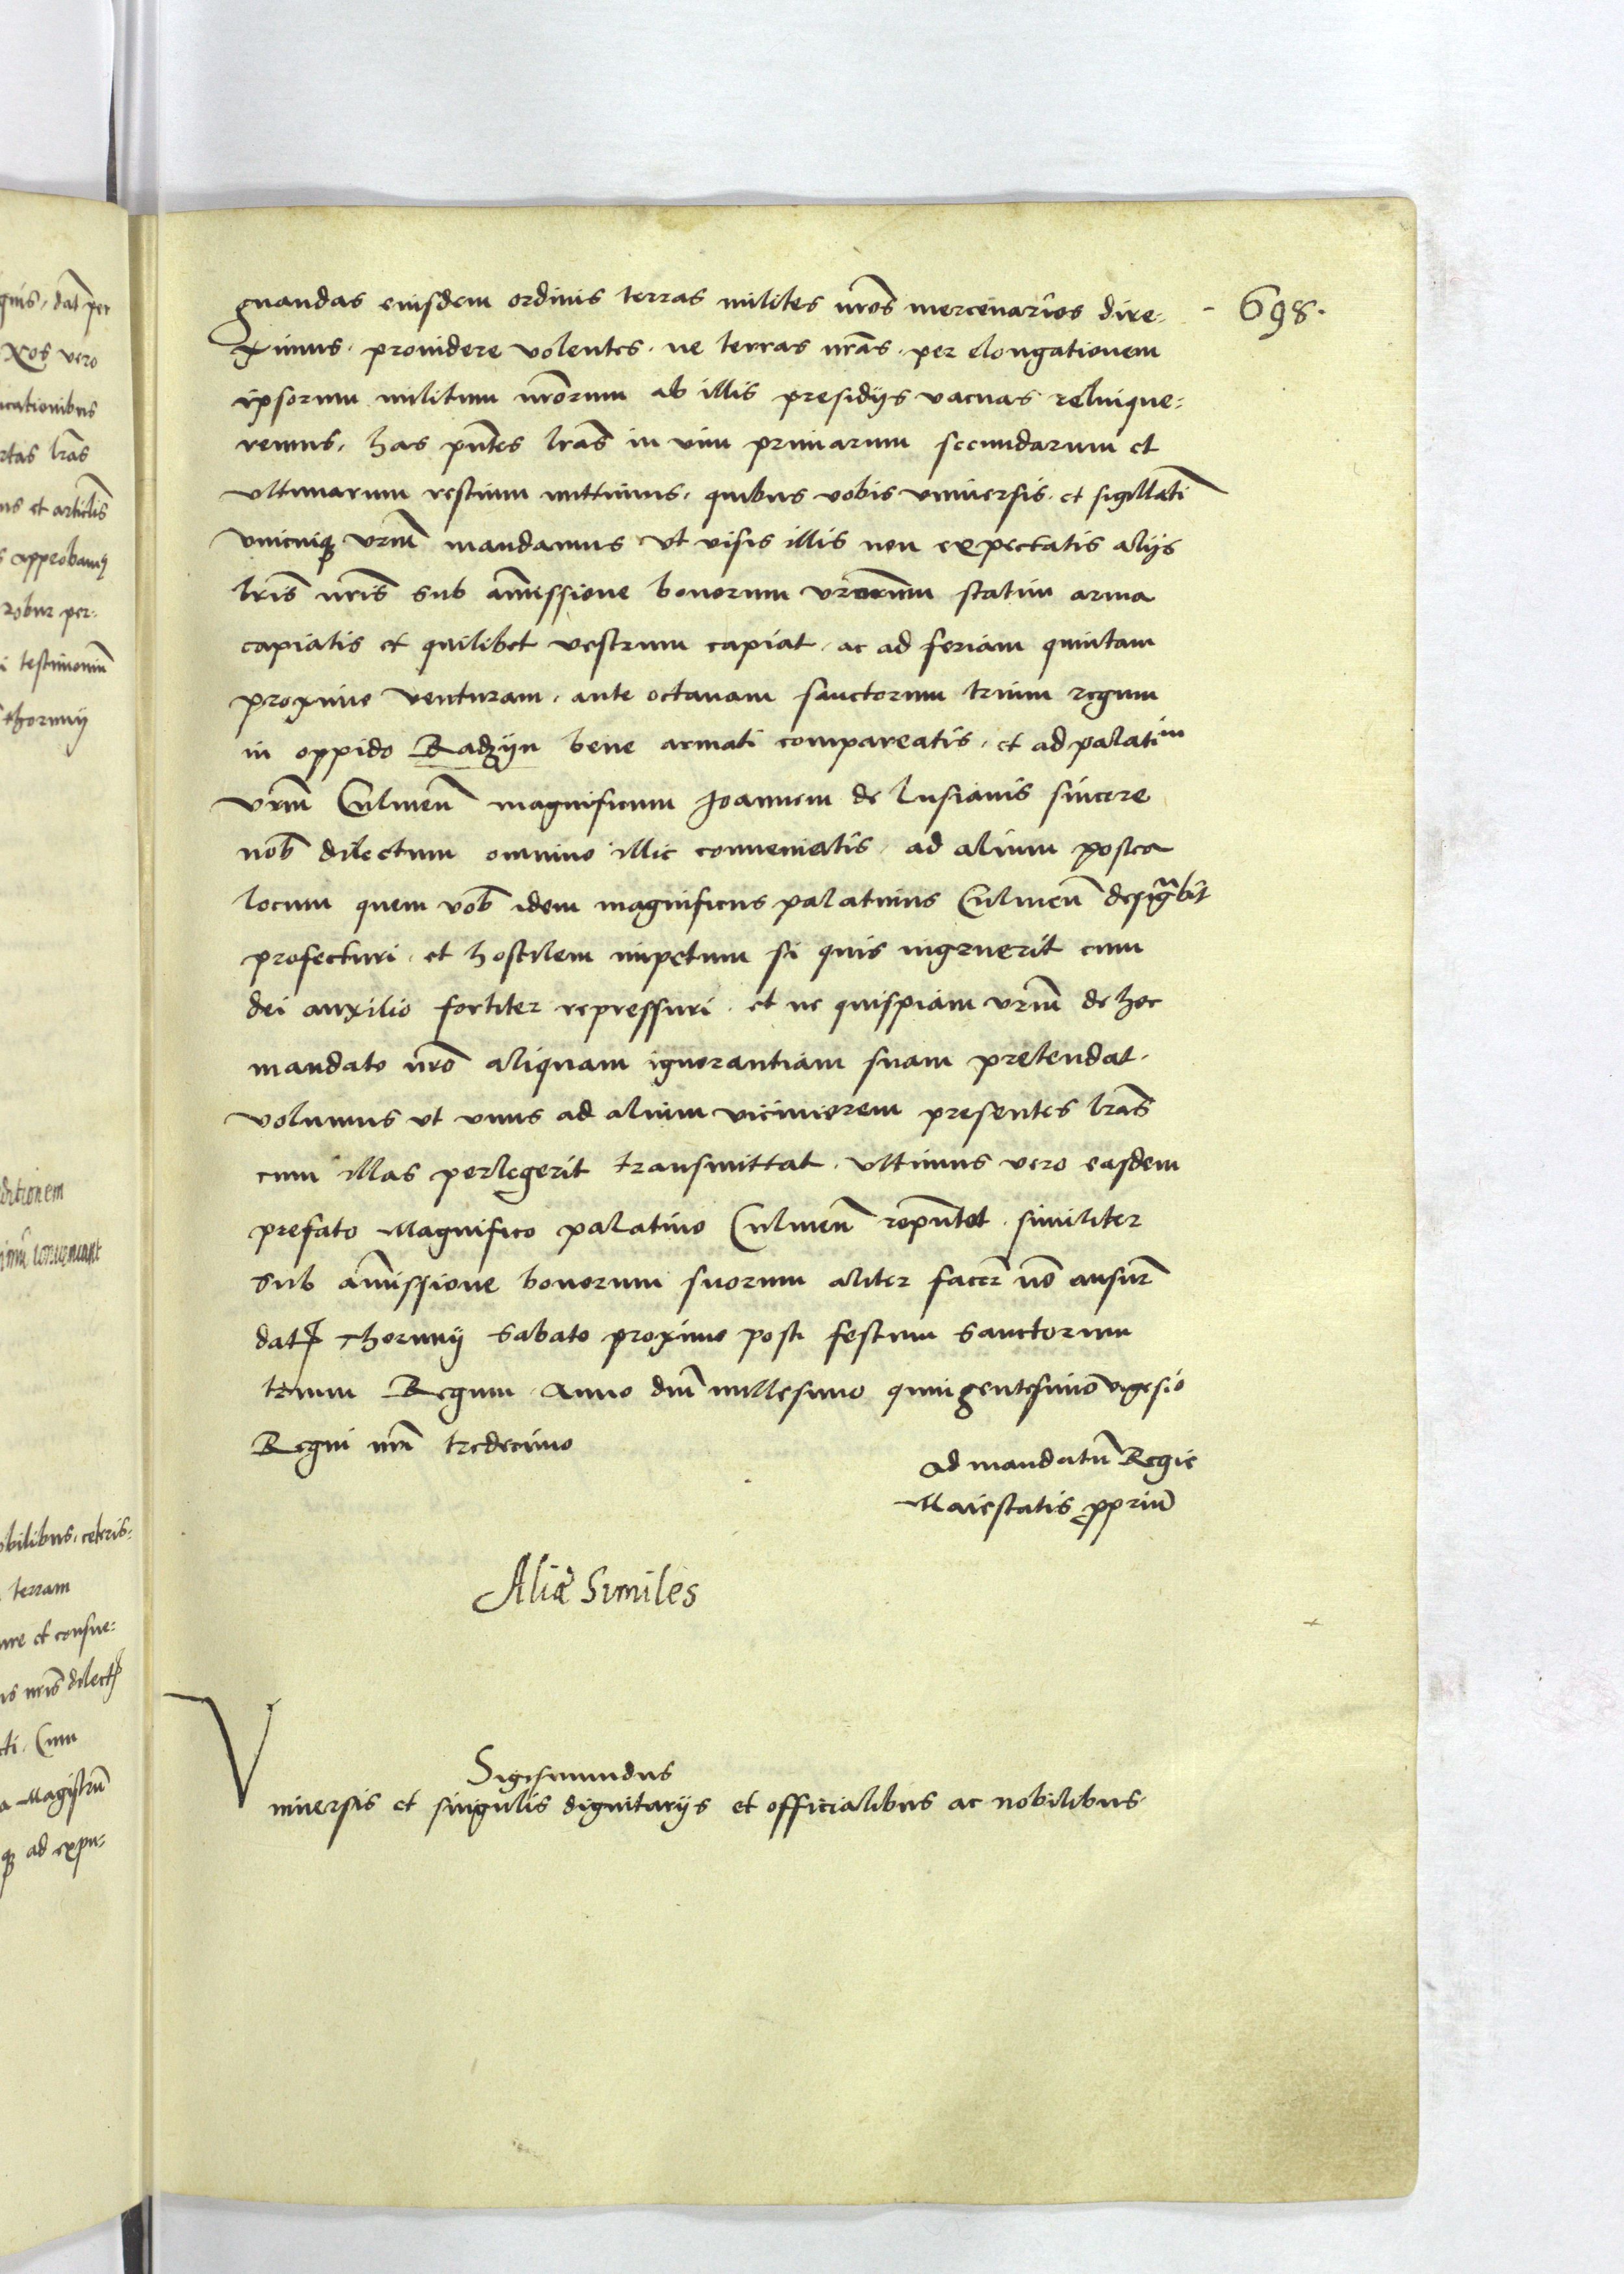 698.
gnandas eiusdem ordinis terras milites nros mercenarios dire-
ximus. prouidere volentes. ne terras nras. per elongationem
ipsorum militum nrorum ab illis presidijs vacuas relinque-
remus, has pntes lras in vim primarum secundarum et
vltimarum restium mittimus. quibus vobis vniuersis. et sigillati
vnicuiq vrm mandamus vt visis illis non expectatis alijs
lris nris sub amissione bonorum vrorum statim arma
capiatis et quilibet vestrum capiat. ac ad feriam quintam
proxime venturam. ante octauam sanctorum trium regum
in oppido Radzyn bene armati compareatis. et ad palatinu
vrm Culmen magnificum Joannem de lusianis sincere
nob dilectum omnino illic conueniatis. ad alium postea
locum quem vob idem magnificus palatinus Culmen designabit
profecturi. et hostilem impetum si quis ingruerit cum
dei auxilio fortiter repressuri. et ne quispiam vrm de hoc
mandato nro aliquam ignorantiam suam pretendat.
volumus vt vnus ad alium viciniorem presentes lras
cum illas perlegerit transmittat. vltimus vero easdem
prefato Magnifico palatino Culmen repntet. similiter
sub amissione bonorum suorum aliter facer no ausur
dat Thorunij sabato proximo post festum sanctorum
trium Regum. Anno dni millesimo quingentesimo vigesio
Regni nri tredecimo
Ad mandatu Regie
Maiestatis ppriu
Aliæ Similes
Sigismundus
Vniuersis et singulis dignitarijs et officialibus ac nobilibus.